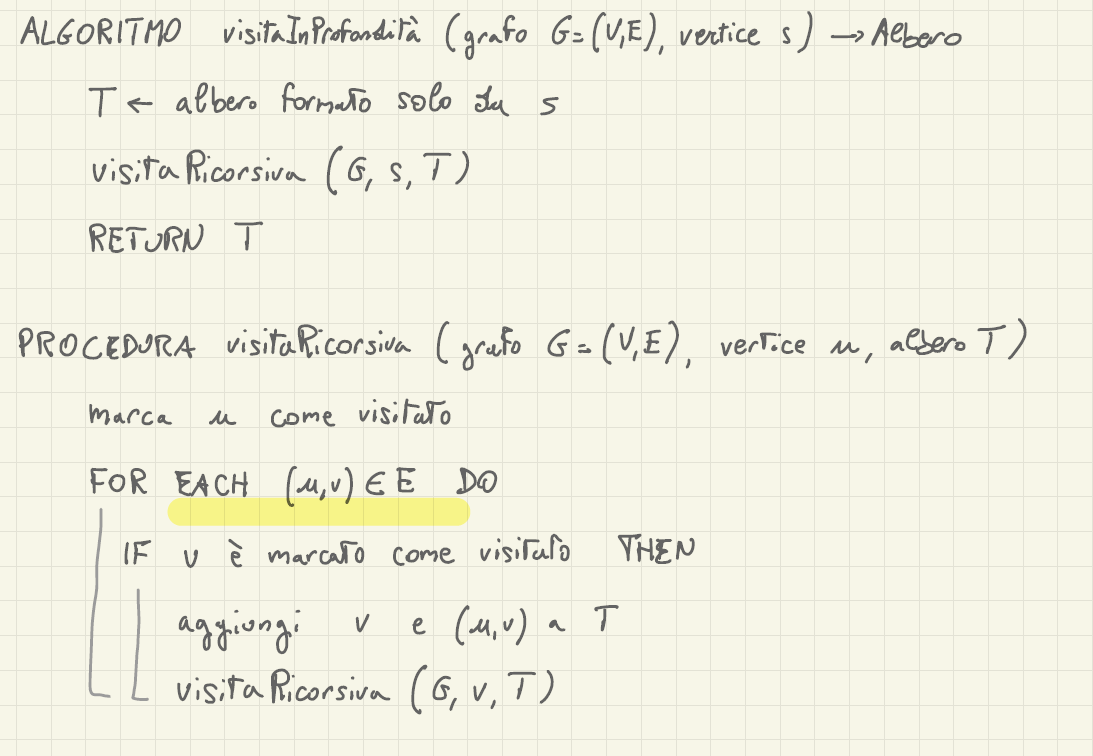 ALGORITMO visitaInProfondità (grafo G=(V,E), vertice s) → Albero
T ← albero formato solo da s
visitaRicorsiva (G, s, T)
RETURN T
PROCEDURA visitaRicorsiva (grafo G=(V,E), vertice u, albero T)
marca u come visitato
FOR EACH (u,v) ∈ E DO
IF v è marcato come visitato THEN
aggiungi v e (u,v) a T
visitaRicorsiva (G, v, T)